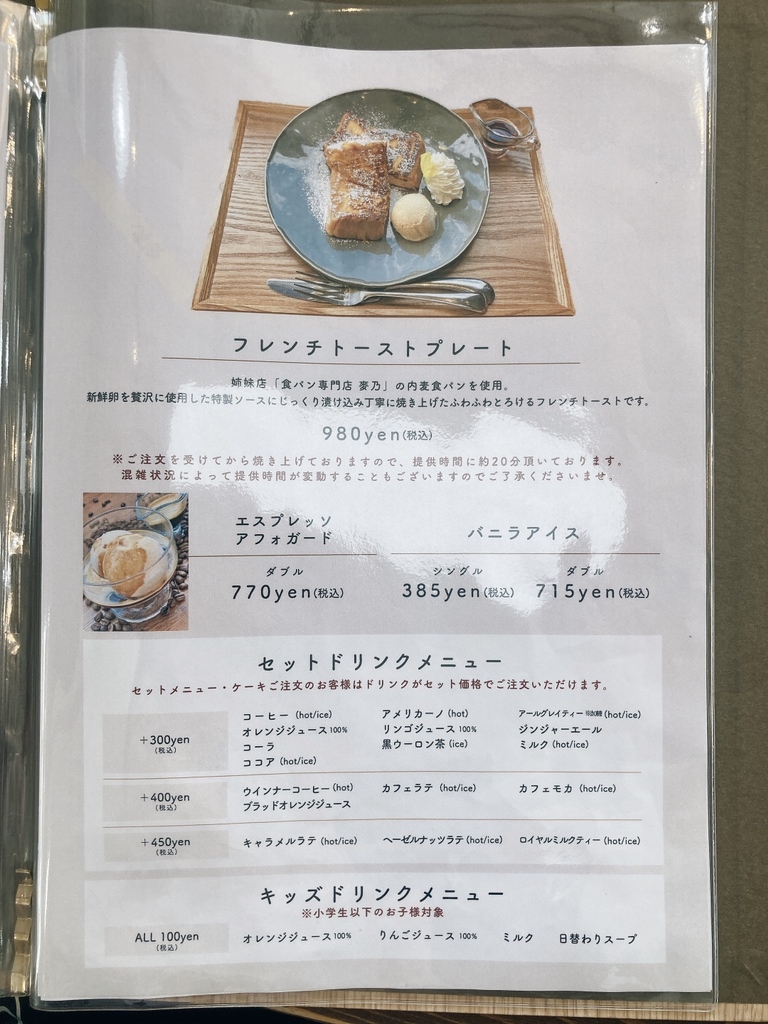 フレンチトーストプレート
姉妹店「食パン専門店 麥乃」の内麦食パンを使用。
新鮮卵を贅沢に使用した特製ソースにじっくり漬け込み丁寧に焼き上げたふわふわとろけるフレンチトーストです。
980yen(税込)
※ご注文を受けてから焼き上げておりますので、提供時間に約20分頂いております。
混雑状況によって提供時間が変動することもございますのでご了承くださいませ。
エスプレッソ
アフォガード
ダブル
770yen(税込)
バニラアイス
シングル ダブル
385yen(税込) 715yen(税込)
セットドリンクメニュー
セットメニュー・ケーキご注文のお客様はドリンクがセット価格でご注文いただけます。
+300yen
(税込)
コーヒー (hot/ice) アメリカーノ (hot) アールグレイティー (hot/ice)
オレンジジュース100% リンゴジュース100% ジンジャーエール
コーラ 黒ウーロン茶 (ice) ミルク (hot/ice)
ココア (hot/ice)
+400yen
(税込)
ウインナーコーヒー (hot) カフェラテ (hot/ice) カフェモカ (hot/ice)
ブラッドオレンジジュース
+450yen
(税込)
キャラメルラテ (hot/ice) ヘーゼルナッツラテ (hot/ice) ロイヤルミルクティー (hot/ice)
キッズドリンクメニュー
※小学生以下のお子様対象
ALL 100yen
(税込)
オレンジジュース100% りんごジュース100% ミルク 日替わりスープ